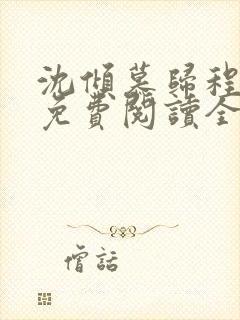 沈傾墓歸程
免費閱讀全
僧話